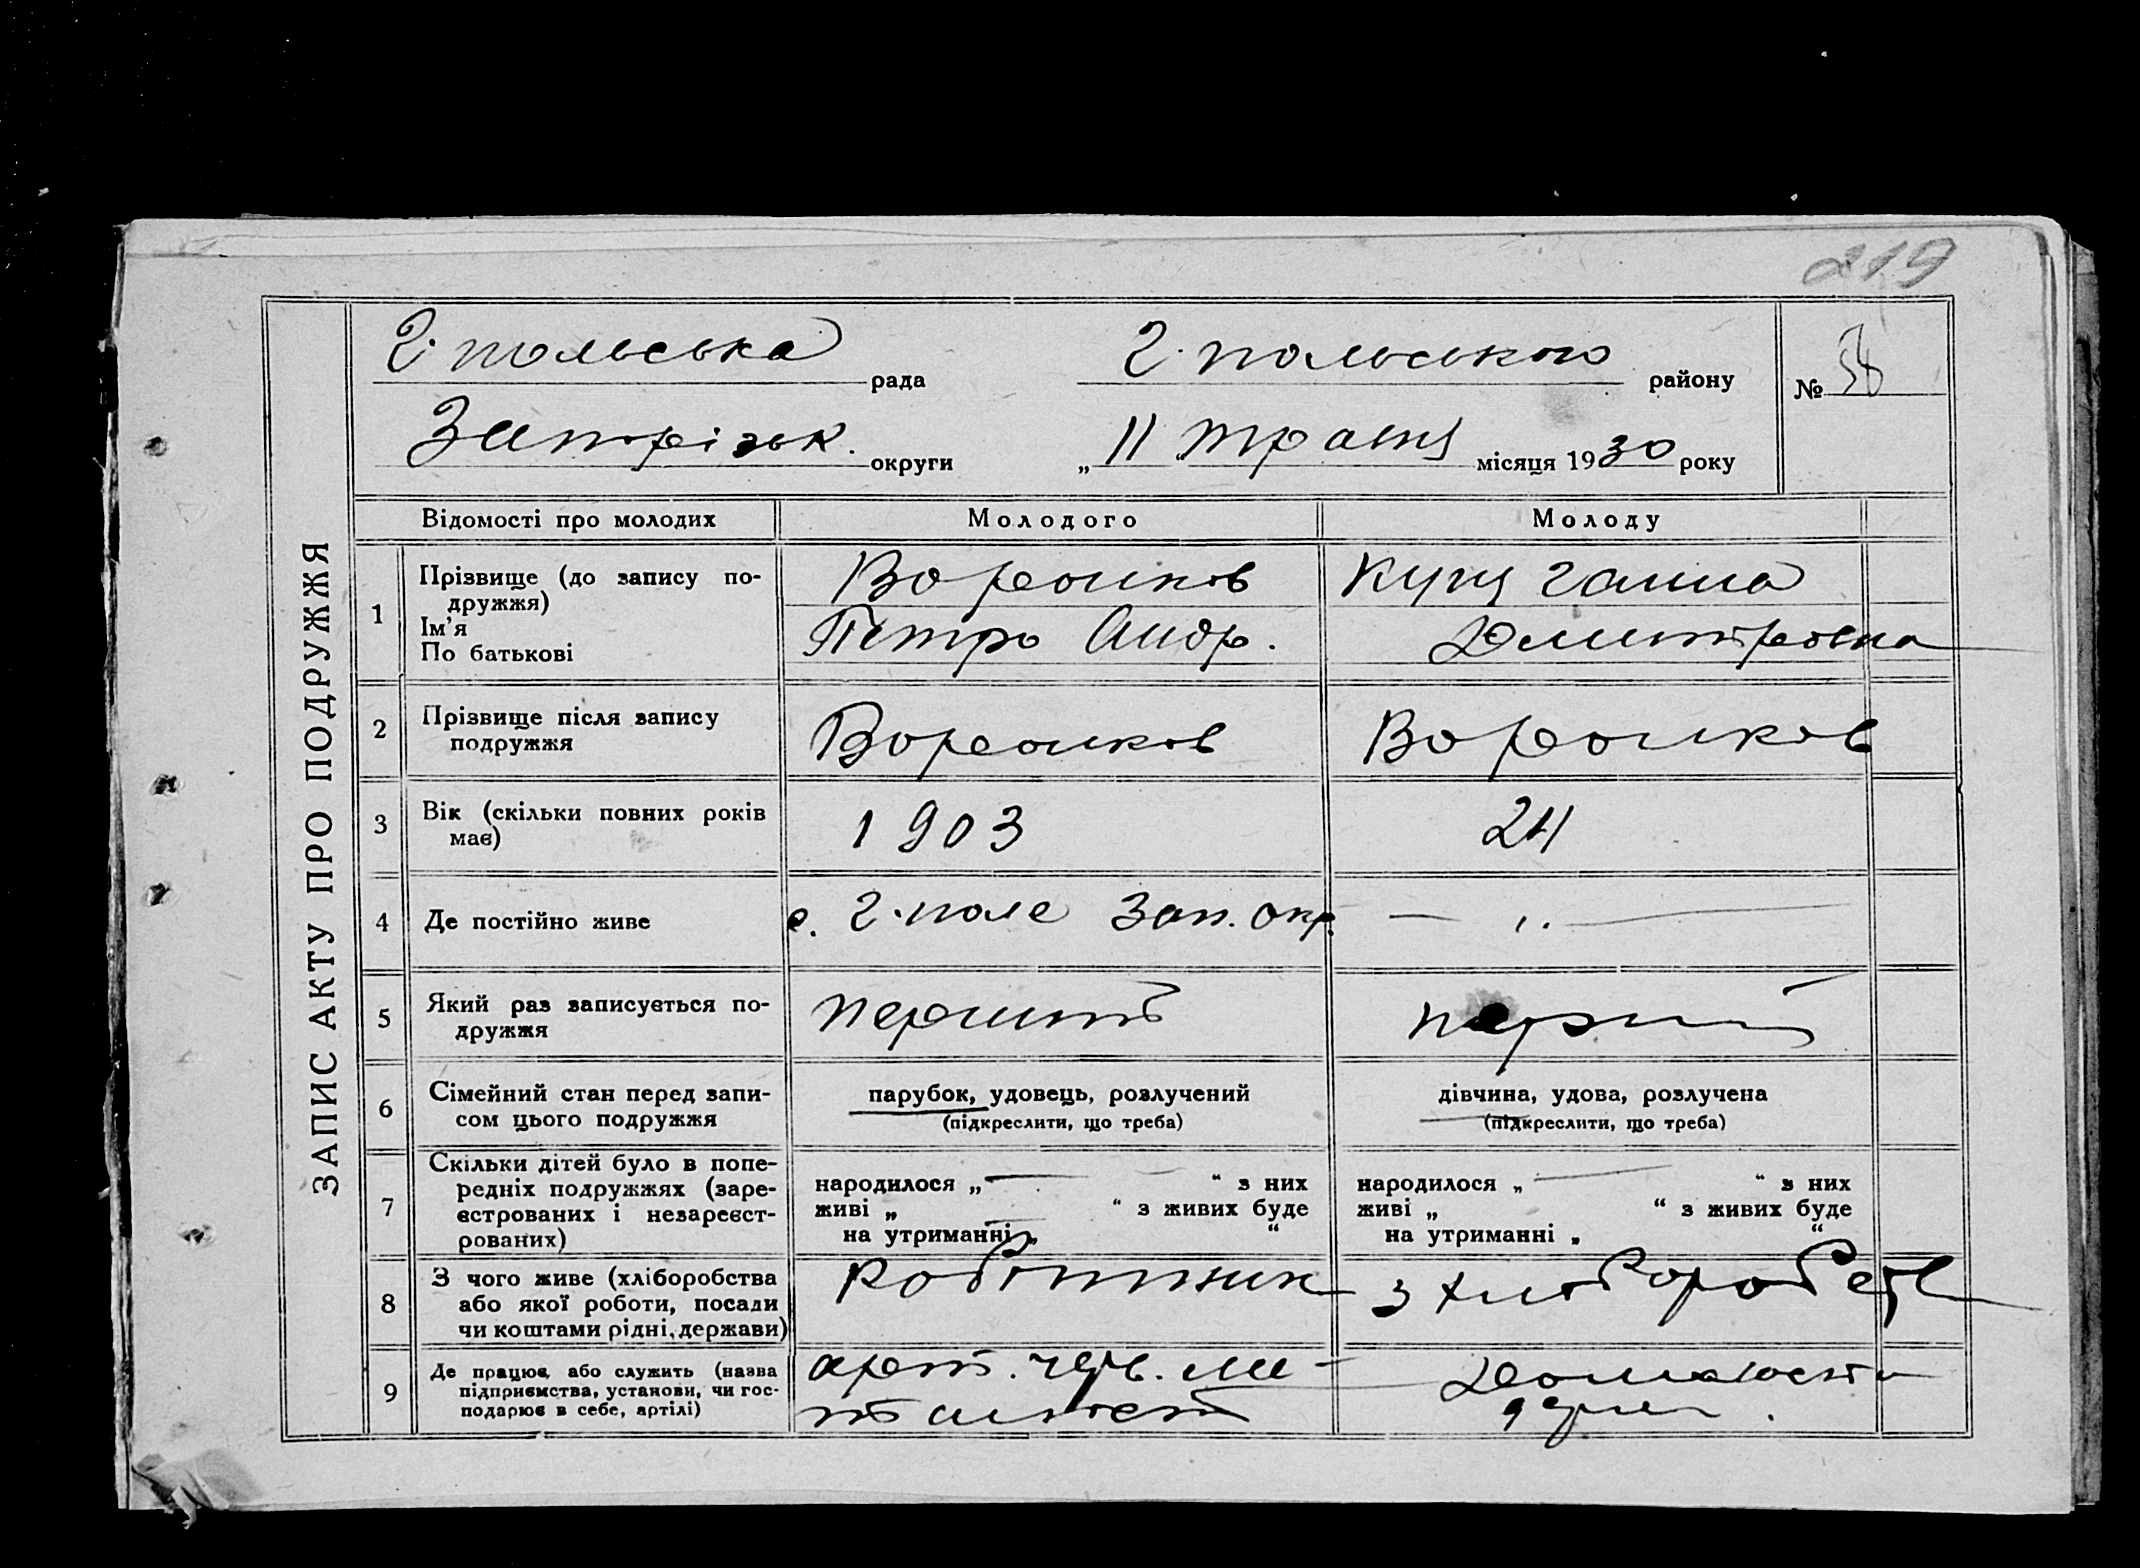 219
Г. польська рада Г. польського району № 38
Запорізьк. округи „ 11 " травня місяця 1930 року
ЗАПИС АКТУ ПРО ПОДРУЖЖЯ
Відомості про молодих Молодого Молоду
1 Прізвище (до запису по-
дружжя)
Ім'я
По батькові
Ганна
Петро Андр. Дмитровна
2 Прізвище після запису
подружжя
3 Вік (скільки повних років
має)
1903 24
4 Де постійно живе с. Г. поле Зап. окр. — „ —
5 Який раз записується по-
дружжя
перший перший
6 Сімейний стан перед запи-
сом цього подружжя
парубок, удовець, розлучений
(підкреслити, що треба)
дівчина, удова, розлучена
(підкреслити, що треба)
7 Скільки дітей було в попе-
редніх подружжях (заре-
єстрованих і незареєст-
рованих)
народилося „ — “ з них
живі „ “ з живих буде
на утриманні „ “
народилося „ — “ з них
живі „ “ з живих буде
на утриманні „ “
8 З чого живе (хліборобства
або якої роботи, посади
чи коштами рідні, держави)
Робітник
з хліборобств
9 Де працює, або служить (назва
підприємства, установи, чи гос-
подарює в себе, артілі)
арт. черв. ме-
таліст